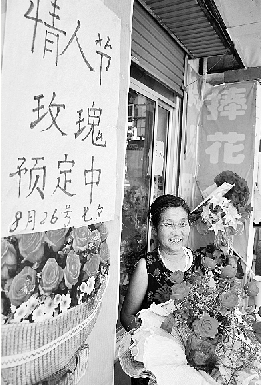 情人节
玫瑰
预定中
8月26号
捧花